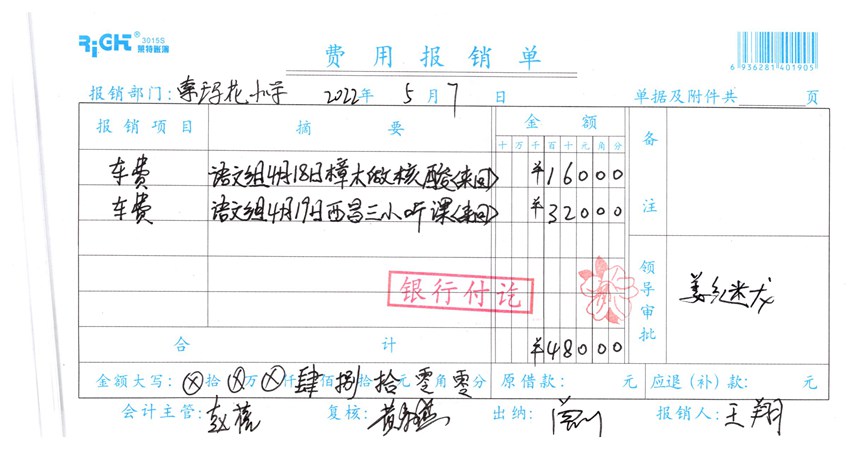 RiGHT® 3015S 莱特账簿
费用报销单
6 936281 401905
报销部门：索玛花小学 2022年 5月7日 单据及附件共 页
报销项目 摘要 金额 备注
十万千百十元角分
车费 语文组4月18日樟木做核酸(来回) ¥16000
车费 语文组4月19日西昌三小听课(来回) ¥32000
银行付讫
领导审批
合计 ¥48000
金额大写：ⓧ拾ⓧ万ⓧ仟肆佰捌拾零元零角零分 原借款： 元 应退（补）款： 元
会计主管： 复核： 出纳： 报销人：王翔